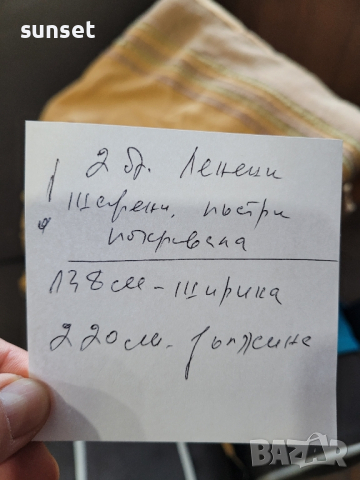 sunset
2 бр. Ленени
шарени, пъстри
покривала
138 см - ширина
220 см. дължина
BAZAR